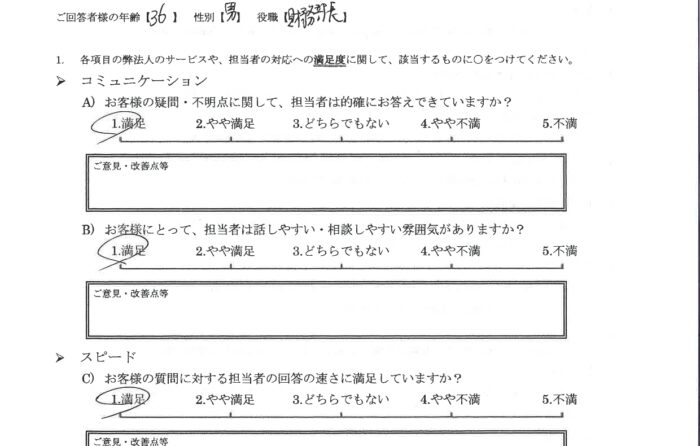 ご回答者様の年齢【36】 性別【男】 役職【財務部長】
1. 各項目の弊法人のサービスや、担当者の対応への満足度に関して、該当するものに〇をつけてください。
➤ コミュニケーション
A) お客様の疑問・不明点に関して、担当者は的確にお答えできていますか？
1.満足 2.やや満足 3.どちらでもない 4.やや不満 5.不満
ご意見・改善点等
B) お客様にとって、担当者は話しやすい・相談しやすい雰囲気がありますか？
1.満足 2.やや満足 3.どちらでもない 4.やや不満 5.不満
ご意見・改善点等
➤ スピード
C) お客様の質問に対する担当者の回答の速さに満足していますか？
1.満足 2.やや満足 3.どちらでもない 4.やや不満 5.不満
ご意見・改善点等